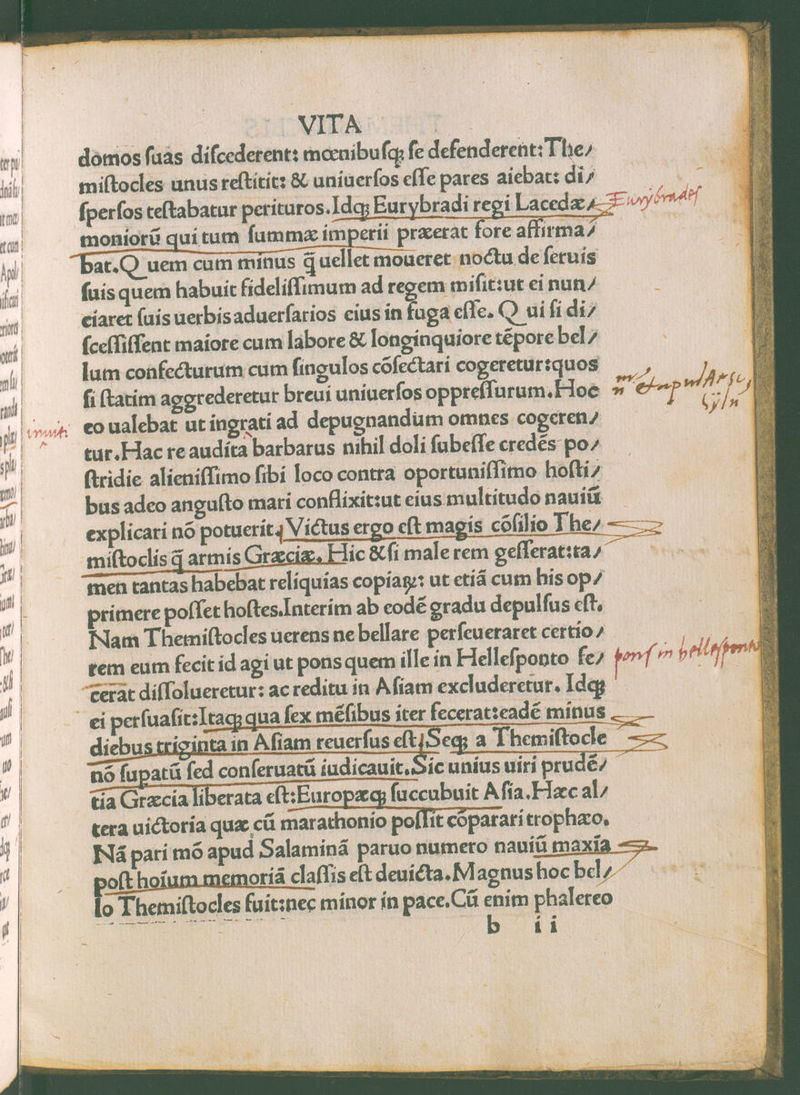 VITA
domos ſuas diſcederent: mœnibuſq; ſe defenderent: The/
miſtocles unus reſtitit: & uniuerſos eſſe pares aiebat: di/
ſperſos teſtabatur perituros. Idq; Eurybradi regi Lacedæ/
Eurybrades
moniorū qui tum ſummæ imperii præerat fore affirma/
bat. Q uem cum minus q̄ uellet moueret noctu de ſeruis
ſuis quem habuit fideliſſimum ad regem miſit: ut ei nun/
ciaret ſuis uerbis aduerſarios eius in fuga eſſe. Q ui ſi di/
ſceſſiſſent maiore cum labore & longinquiore tépore bel/
lum confecturum cum ſingulos cóſectari cogeretur: quos
ſi ſtatim aggrederetur breui uniuerſos oppreſſurum. Hoc
eo ualebat ut ingrati ad depugnandum omnes cogeren/
inuiti
tur. Hac re audita barbarus nihil doli ſubeſſe credés po/
ſtridie alieniſſimo ſibi loco contra oportuniſſimo hoſti/
bus adeo anguſto mari conflixit: ut eius multitudo nauiū
explicari nó potuerit. Victus ergo eſt magis cóſilio The/
miſtoclis q̄ armis Græciæ. Hic & ſi male rem geſſerat: ta/
men tantas habebat reliquias copiaꝝ: ut etiá cum his op/
primere poſſet hoſtes. Interim ab eodé gradu depulſus eſt.
Nam Themiſtocles uerens ne bellare perſeueraret certio/
rem eum fecit id agi ut pons quem ille in Helleſponto fe/
ponſ in helleſponto
cerat diſſolueretur: ac reditu in Aſiam excluderetur. Idq;
ei perſuaſit: Itaq; qua ſex méſibus iter fecerat: eadé minus
diebus triginta in Aſiam reuerſus eſt. Seq; a Themiſtocle
nó ſupatū ſed conſeruatū iudicauit. Sic unius uiri prudé/
tia Græcia liberata eſt: Europæq; ſuccubuit Aſia. Hæc al/
tera uictoria quæ cū marathonio poſſit cóparari trophæo.
Ná pari mó apud Salaminá paruo numero nauiū maxia
poſt hoium memoriá claſſis eſt deuicta. Magnus hoc bel/
lo Themiſtocles fuit: nec minor in pace. Cū enim phalereo
b ii